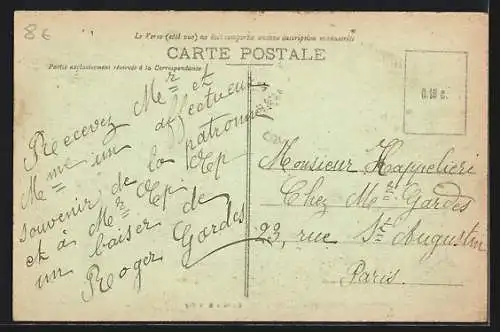 8€
Le Verso (côté vue) ne doit comporter aucune inscription manuscrite
CARTE POSTALE
Partie exclusivement réservée à la Correspondance
0.10 c.
Recevez Mr et
Mme un affectueux
souvenir de la patronne
et à Mr
un baiser de
Roger Gardes
Monsieur Kappelieri
Chez Mr Gardes
23, rue St Augustin
Paris.